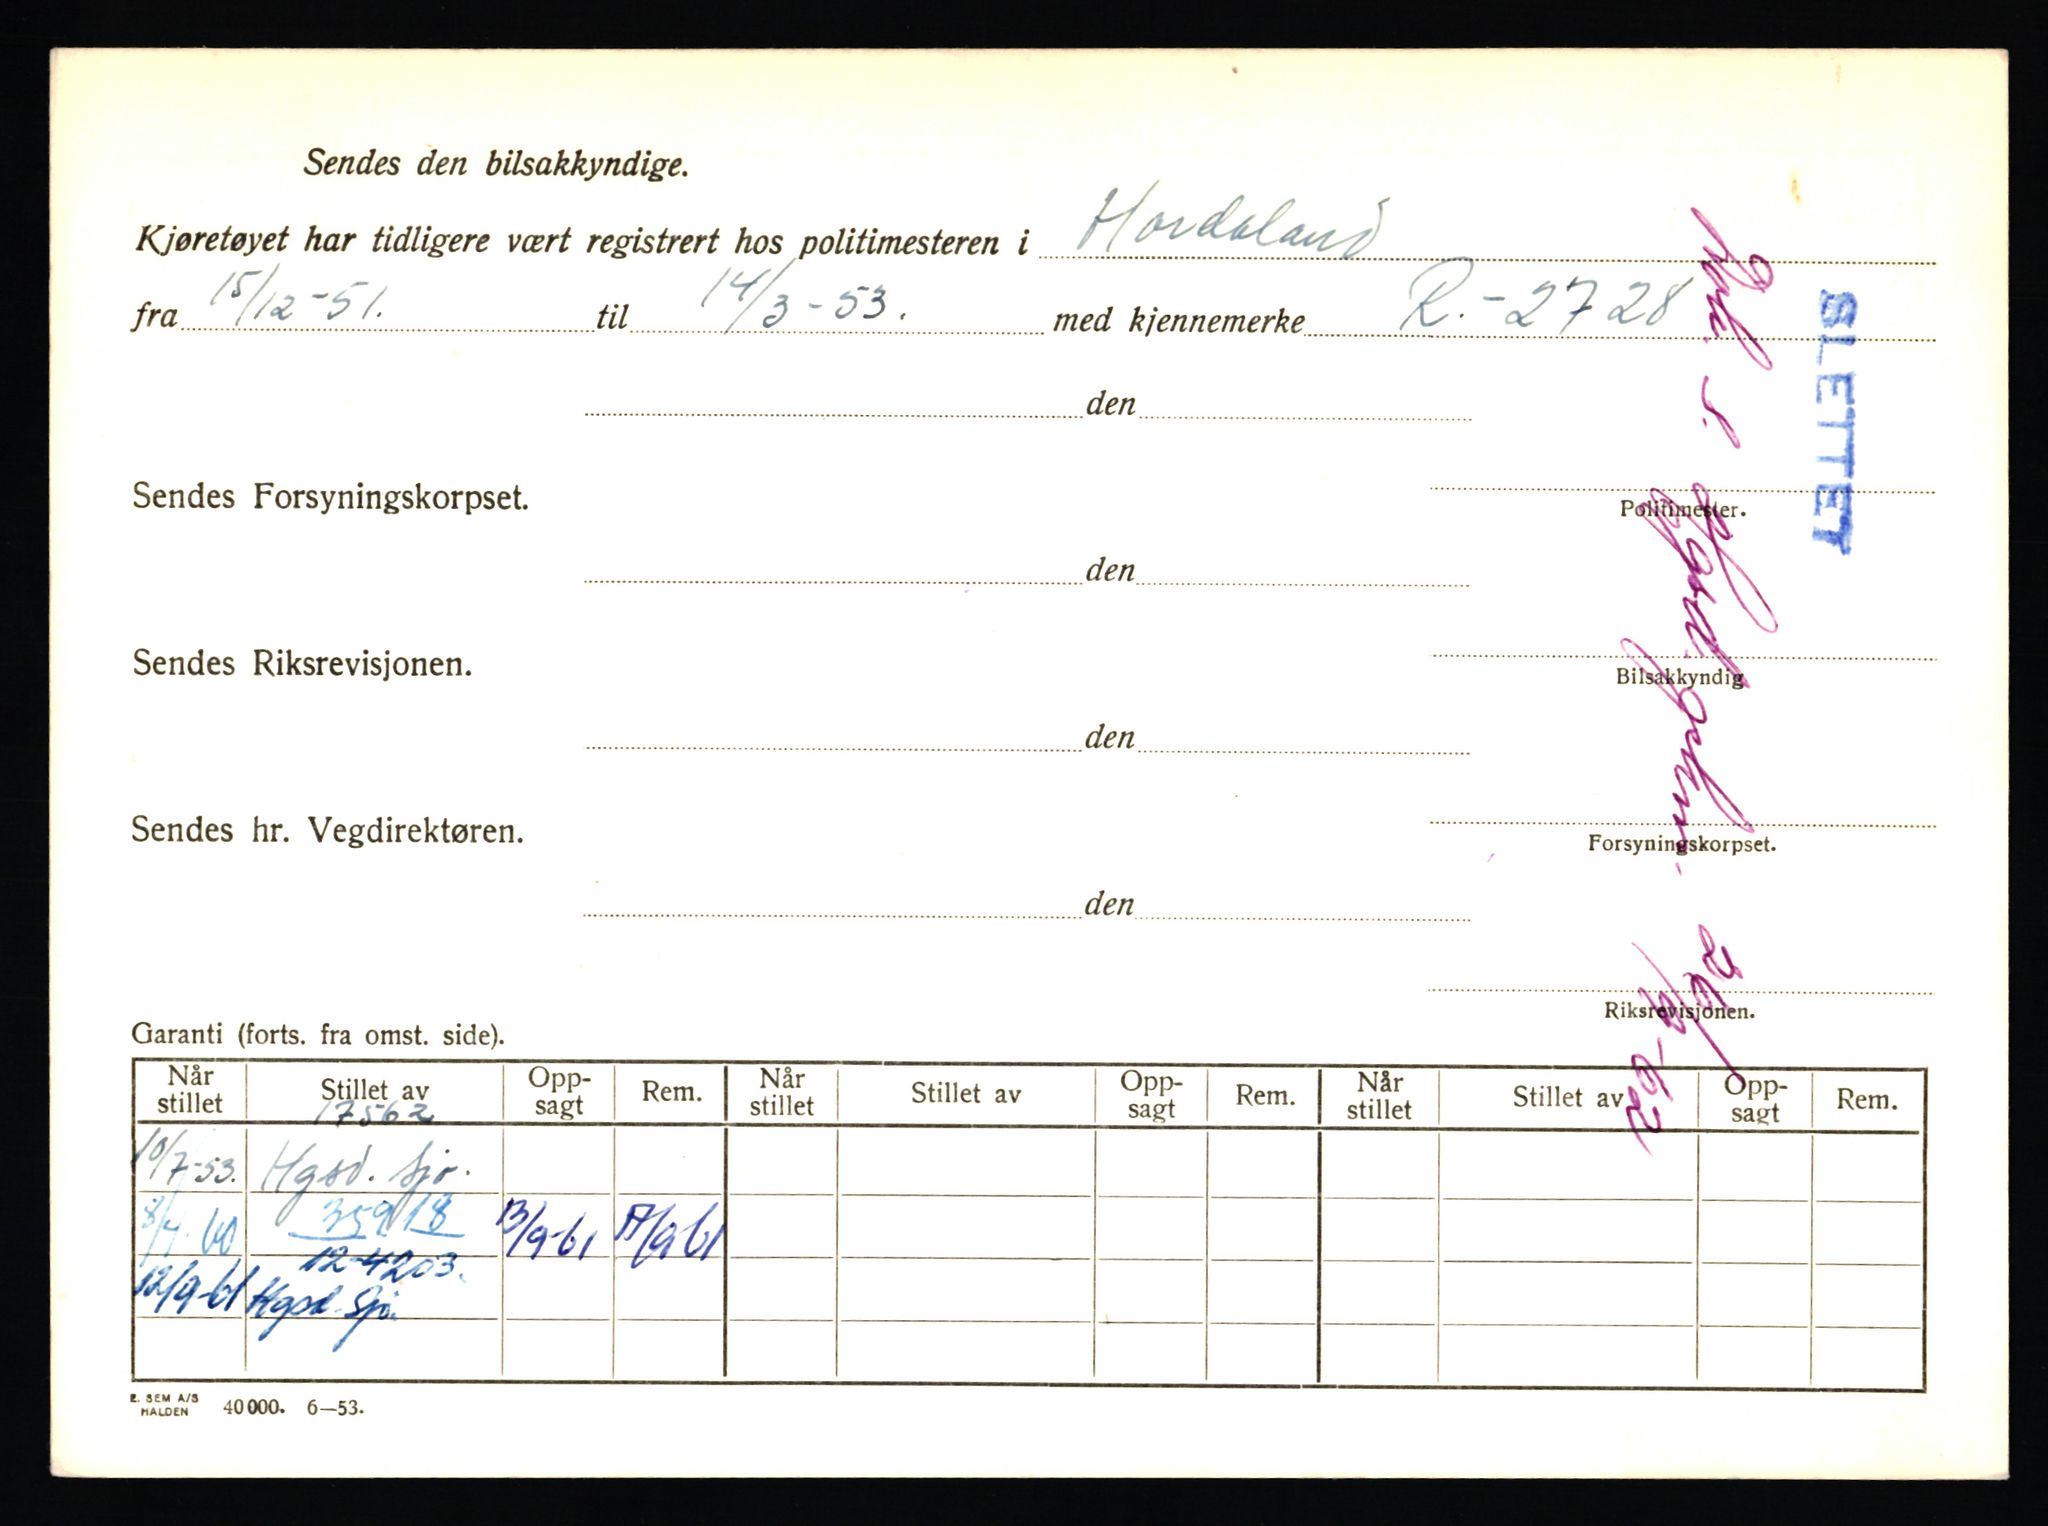 Sendes den bilsakkyndige.
Kjøretøyet har tidligere vært registrert hos politimesteren i Hordaland
fra 15/12-51. til 14/3-53. med kjennemerke R.-2728
den
Sendes Forsyningskorpset.
Politimester.
den
Sendes Riksrevisjonen.
Bilsakkyndig
den
Sendes hr. Vegdirektøren.
Forsyningskorpset.
den
Riksrevisjonen.
SLETTET
26/9-62
Garanti (forts. fra omst. side).
Når stillet Stillet av Opp-sagt Rem. Når stillet Stillet av Opp-sagt Rem. Når stillet Stillet av Opp-sagt Rem.
17562
10/7-53. Hgsd. Sjø.
8/4-60 35918 13/9-61 17/9-61
12-4203.
12/9-61 Hgsd. Sjø.
E. SEM A/S
HALDEN 40000. 6—53.